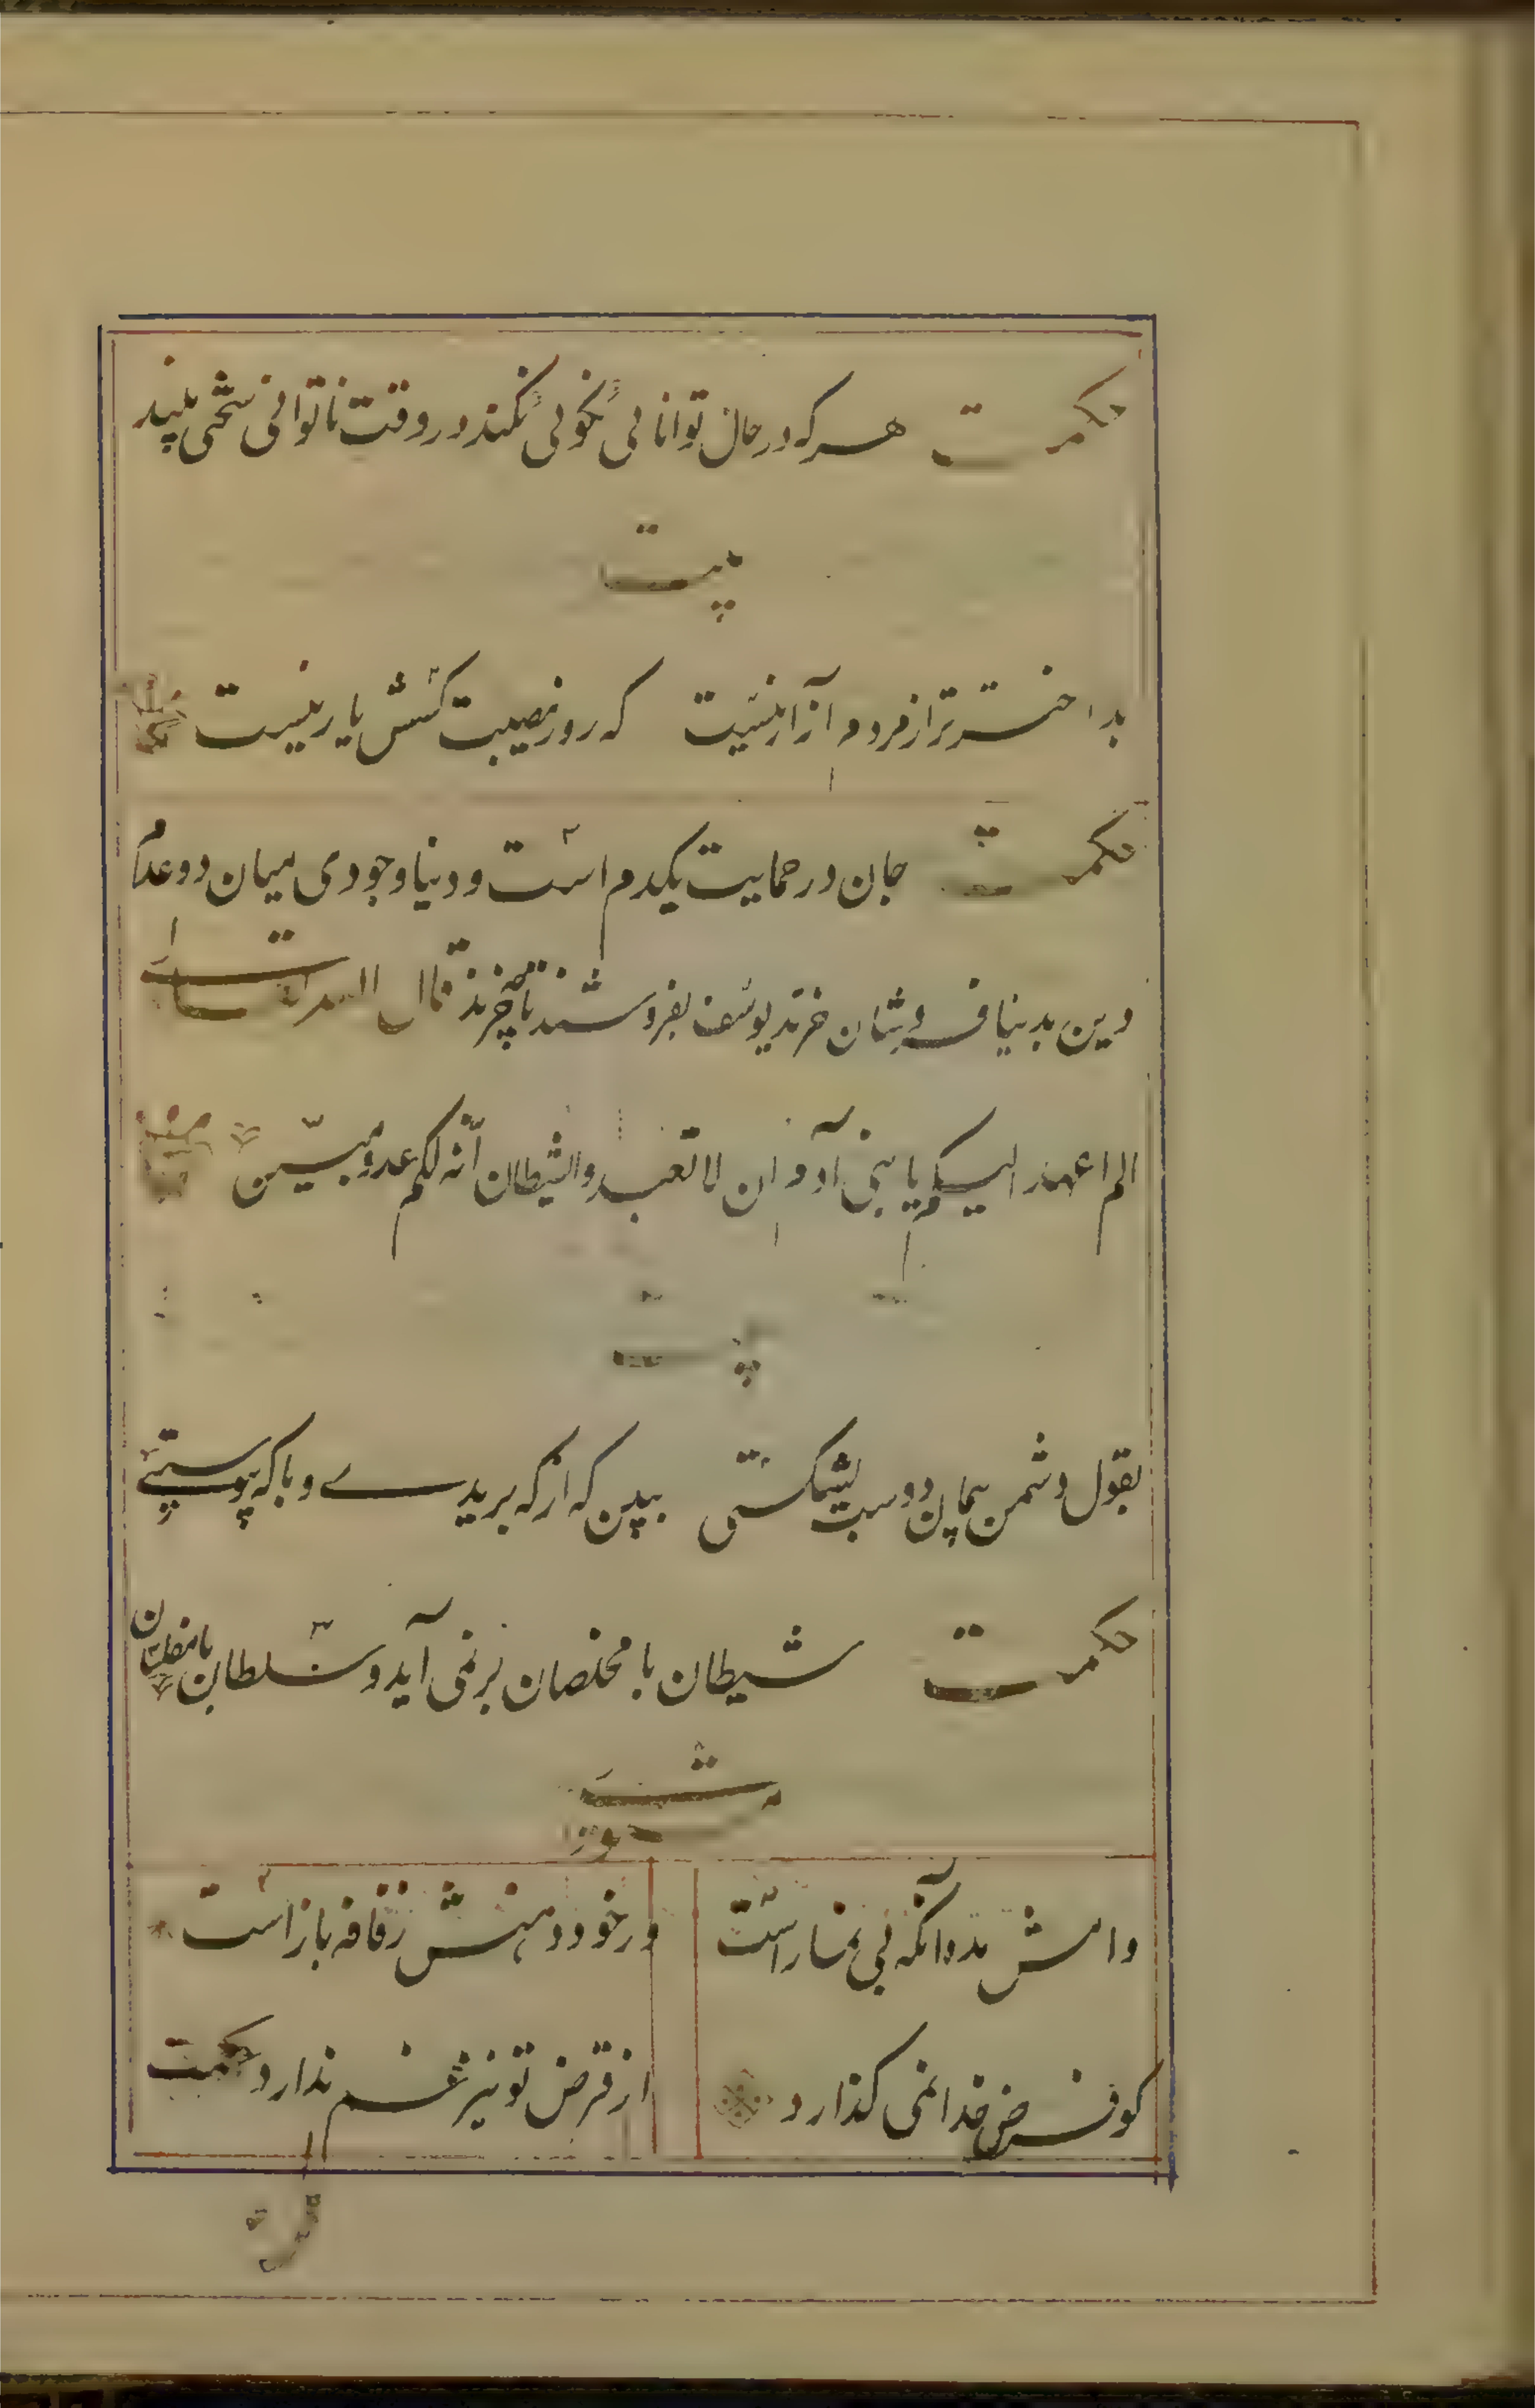 حکمت هرکه در حال توانائی نکوئی نکند در وقت ناتوانی سختی بیند
بیت
بداختر تر از مردم آزار نیست که روز مصیبت کسش یار نیست
حکمت جان در حمایت یکدم است و دنیا وجودی میان دو عدم
دین بدنیا فروشان خرند یوسف بفروشند تا چه خرند قال الله تعالی
الم اعهد الیکم یا بنی آدم ان لا تعبدو الشیطان انّه لکم عدو مبین
بیت
بقول دشمن پیمان دوست بشکستی ببین که از که بریدے و با که پیوستی
حکمت شیطان با مخلصان بر نمی آید و سلطان با مفلسان
مثنوی
وامش مده آنکه بی نماز است ور خود دهنش ز فاقه باز است
کو فرض خدا نمی گذارد از قرض تو نیز غم ندارد حکمت